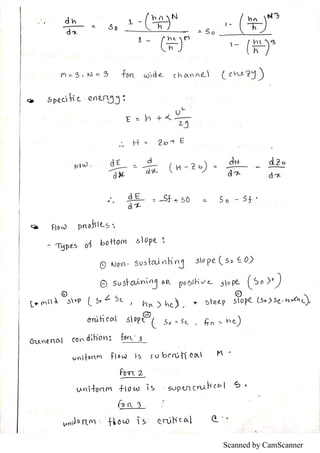 ∴ dh/dx = S0 (1 - (hn/h)^N) / (1 - (hc/h)^M) = S0 (1 - (hn/h)^3) / (1 - (hc/h)^3)
M = 3, N = 3 for wide channel (chezy)
Specific energy:
E = h + α U²/2g
∴ H = Z0 + E
Now, dE/dx = d/dx (H - Z0) = dH/dx - dZ0/dx
∴ dE/dx = -Sf + S0 = S0 - Sf.
Flow profiles:
- Types of bottom slope:
① Non-sustaining slope (S0 ≤ 0)
② Sustaining or positive slope (S0 > 0)
[* mild slop (S0 < Sc, hn > hc), * steep slope (S0 > Sc - hn < hc),
critical slope (S0 = Sc, hn = hc)
General condition: for 1
uniform flow is subcritical M.
for 2
uniform flow is supercritical S.
for 3
uniform flow is critical C.
Scanned by CamScanner